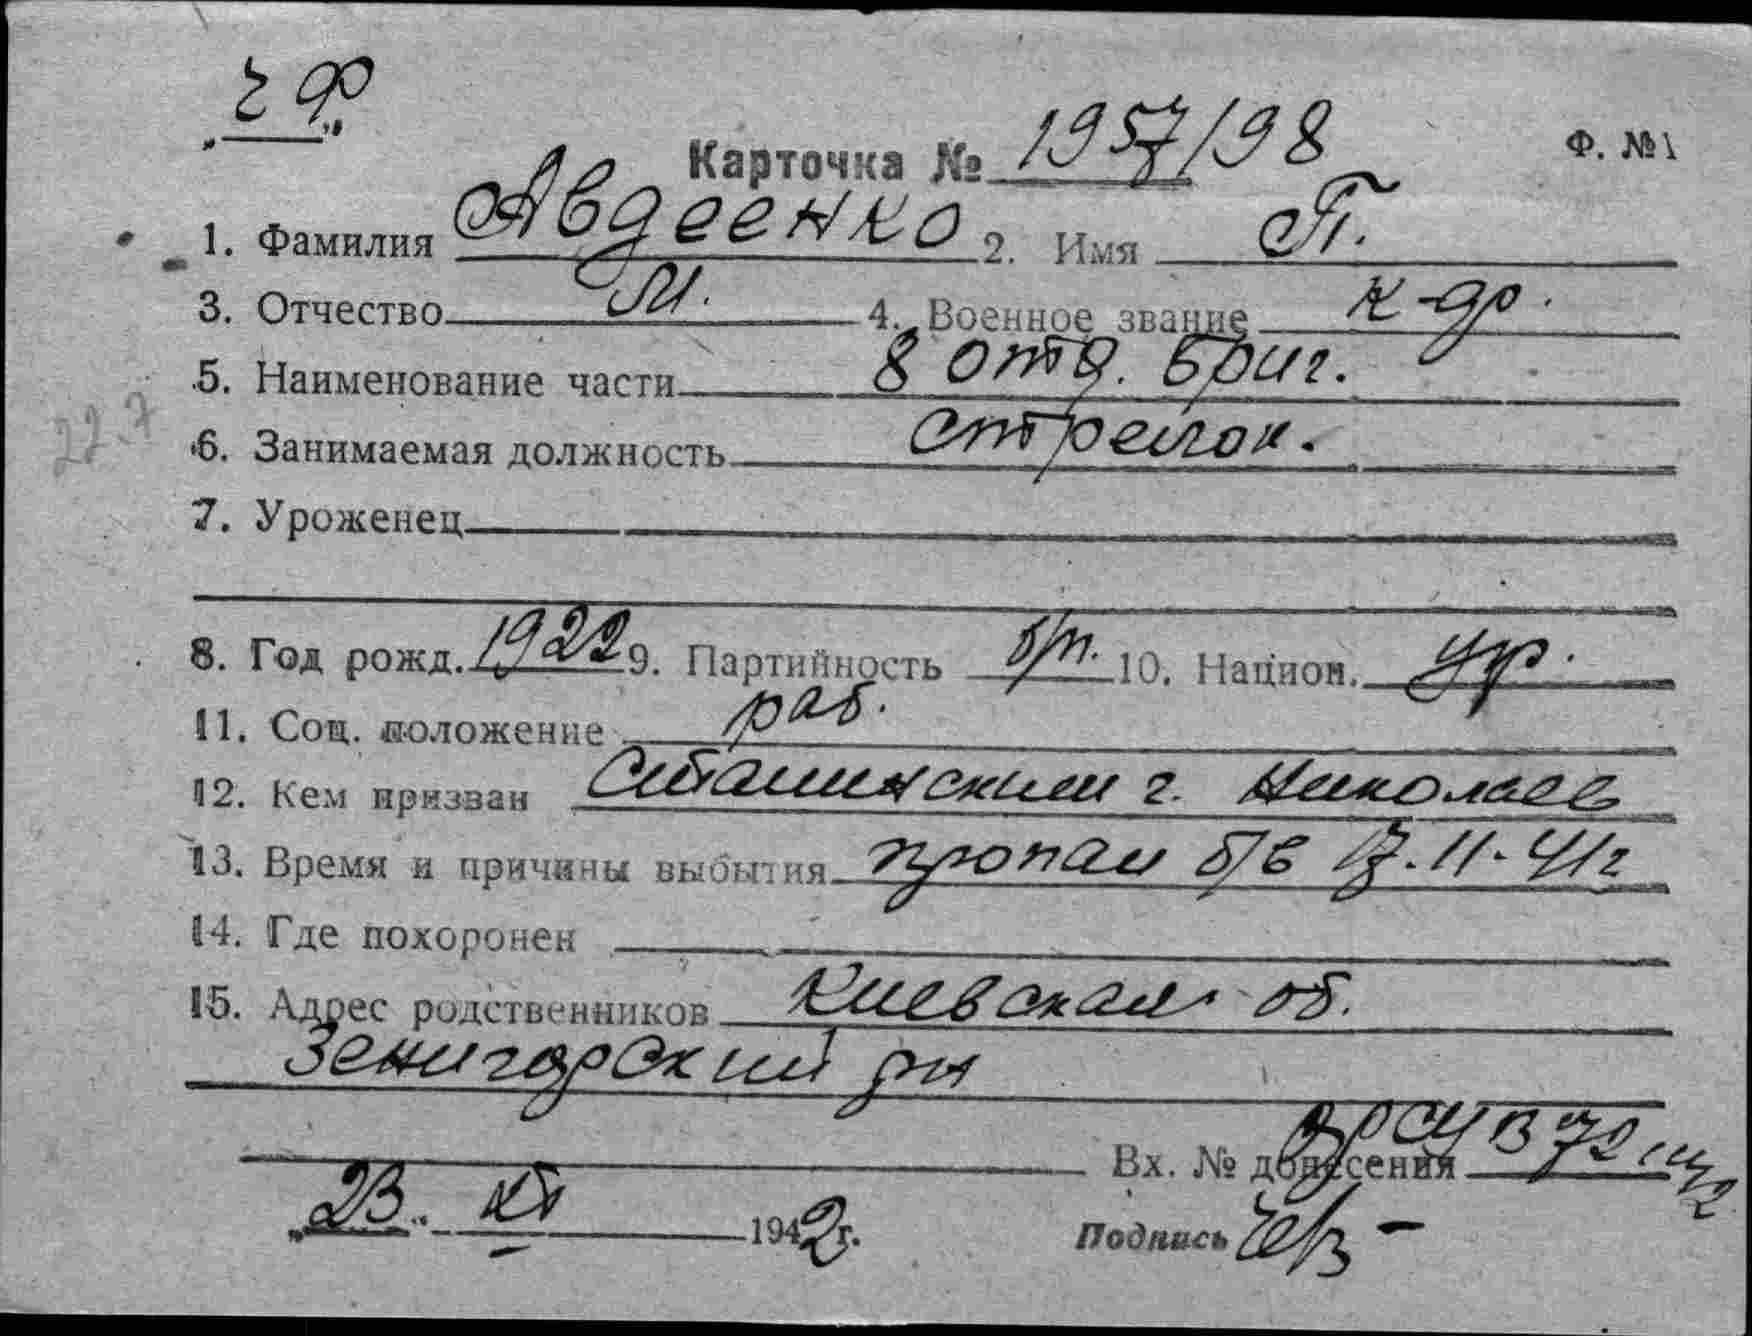 ч ф
Карточка № 1957/198 Ф. №1
1. Фамилия Авдеенко 2. Имя П.
3. Отчество М. 4. Военное звание к-др.
5. Наименование части 8 отд. бриг.
6. Занимаемая должность стрелок.
22.7
7. Уроженец
8. Год рожд. 1922 9. Партийность б/п. 10. Национ. ур.
11. Соц. положение раб.
12. Кем призван Сталинским г. Николаев
13. Время и причины выбытия пропал б/в 17.11.41г
14. Где похоронен
15. Адрес родственников Киевская об.
Зенигорский рн
Вх. № донесения
"23" XI 1942 г. Подпись